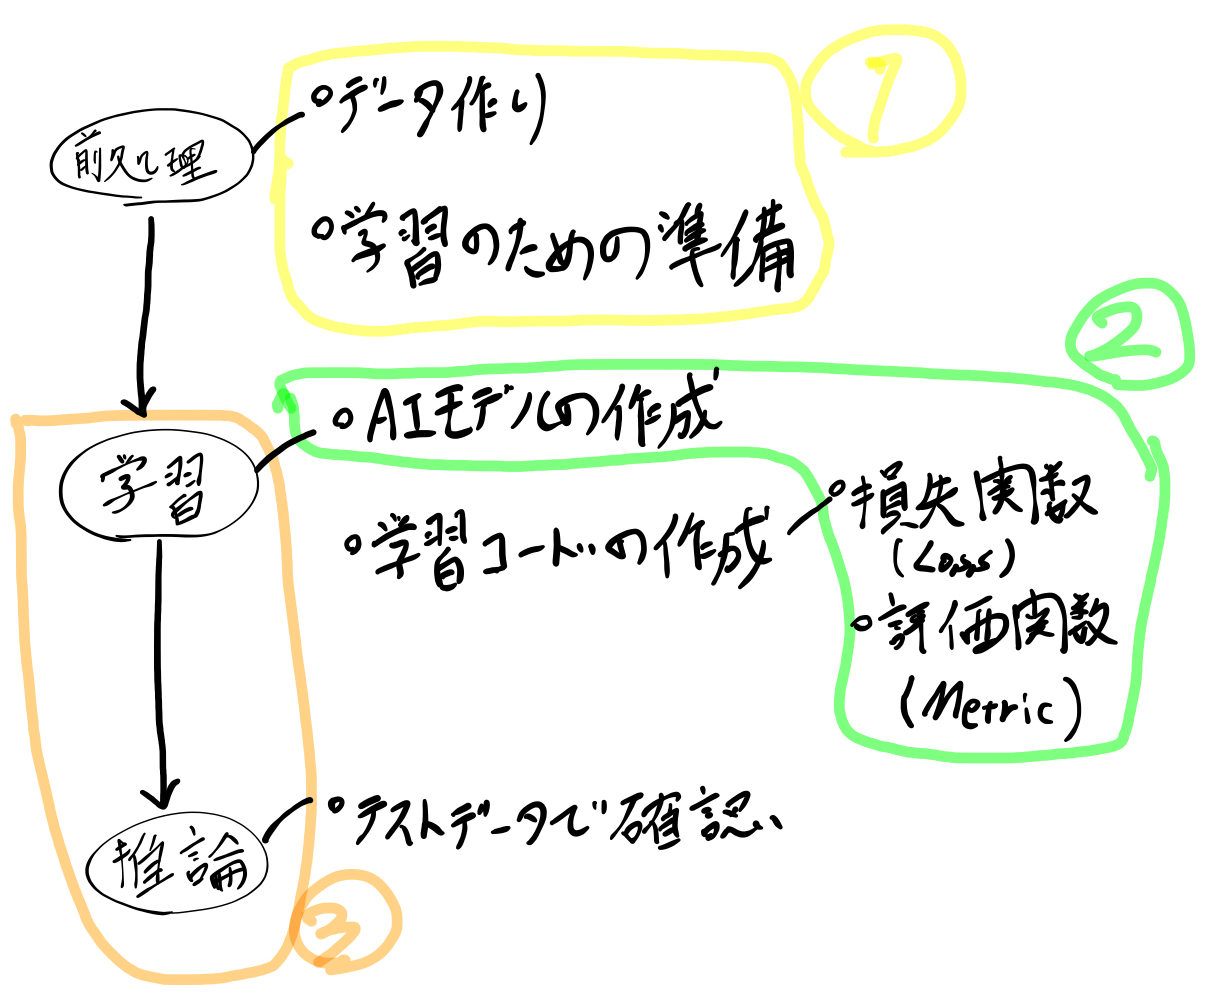 ①
前処理
・データ作り
・学習のための準備
②
学習
・AIモデルの作成
・学習コードの作成
・損失関数
(Loss)
・評価関数
(Metric)
推論
・テストデータで確認
③